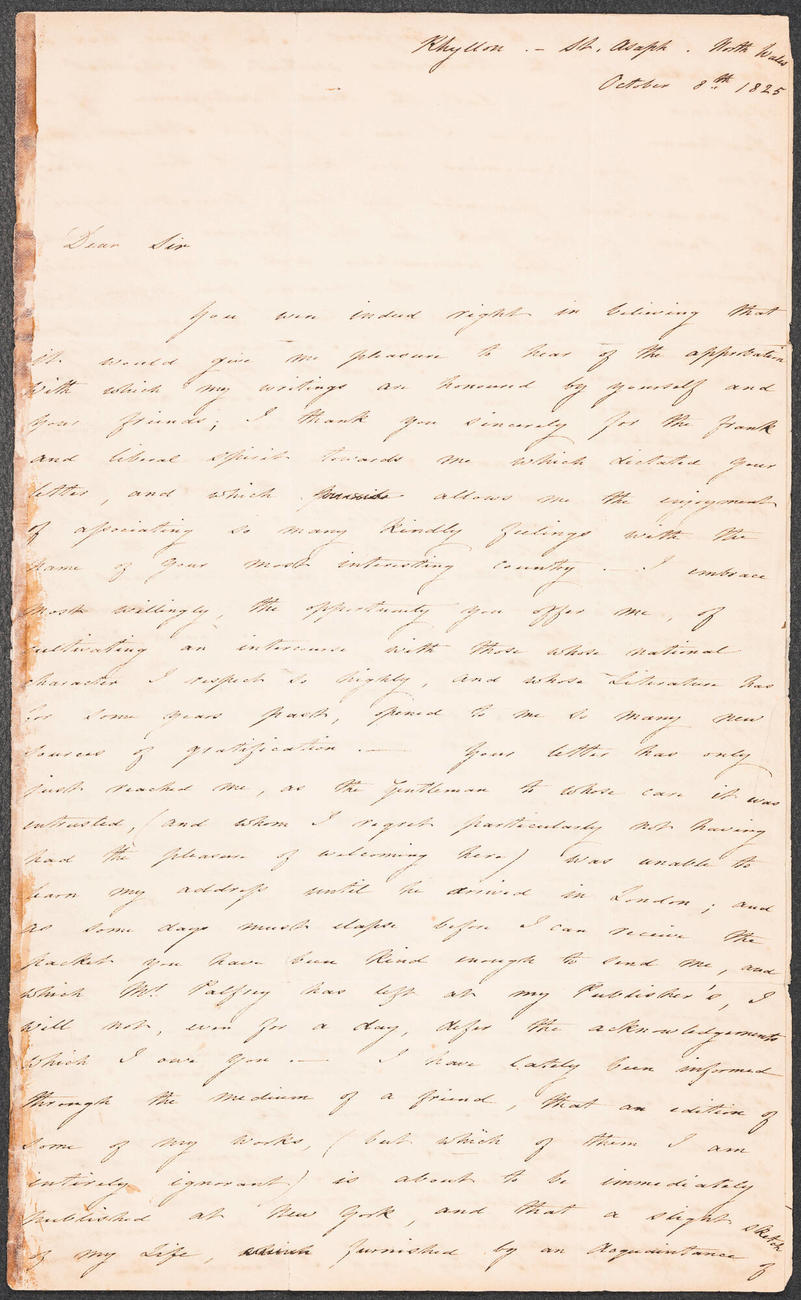 Rhyllon . - St. Asaph . North Wales
October 8th 1825
Dear Sir
You were indeed right in believing that
it would give me pleasure to hear of the approbation
with which my writings are honoured by yourself and
your friends; I thank you sincerely for the frank
and liberal spirit towards me which dictated your
letter, and which allows me the enjoyment
of associating so many kindly feelings with the
name of your most interesting country. — I embrace
most willingly, the opportunity you offer me, of
cultivating an intercourse with those whose national
character I respect so highly, and whose Literature has
for some years past, opened to me so many new
sources of gratification. — Your letter has only
just reached me, as the Gentleman to whose care it was
entrusted, (and whom I regret particularly not having
had the pleasure of welcoming here) was unable to
learn my address until he arrived in London; and
as some days must elapse before I can receive the
packet you have been kind enough to send me, and
which Mr. Palfrey has left at my Publisher's, I
will not, even for a day, defer the acknowledgements
which I owe you. — I have lately been informed
through the medium of a friend, that an edition of
some of my works, (but which of them I am
entirely ignorant) is about to be immediately
published at New York, and that a slight sketch
of my Life, which furnished by an Acquaintance of